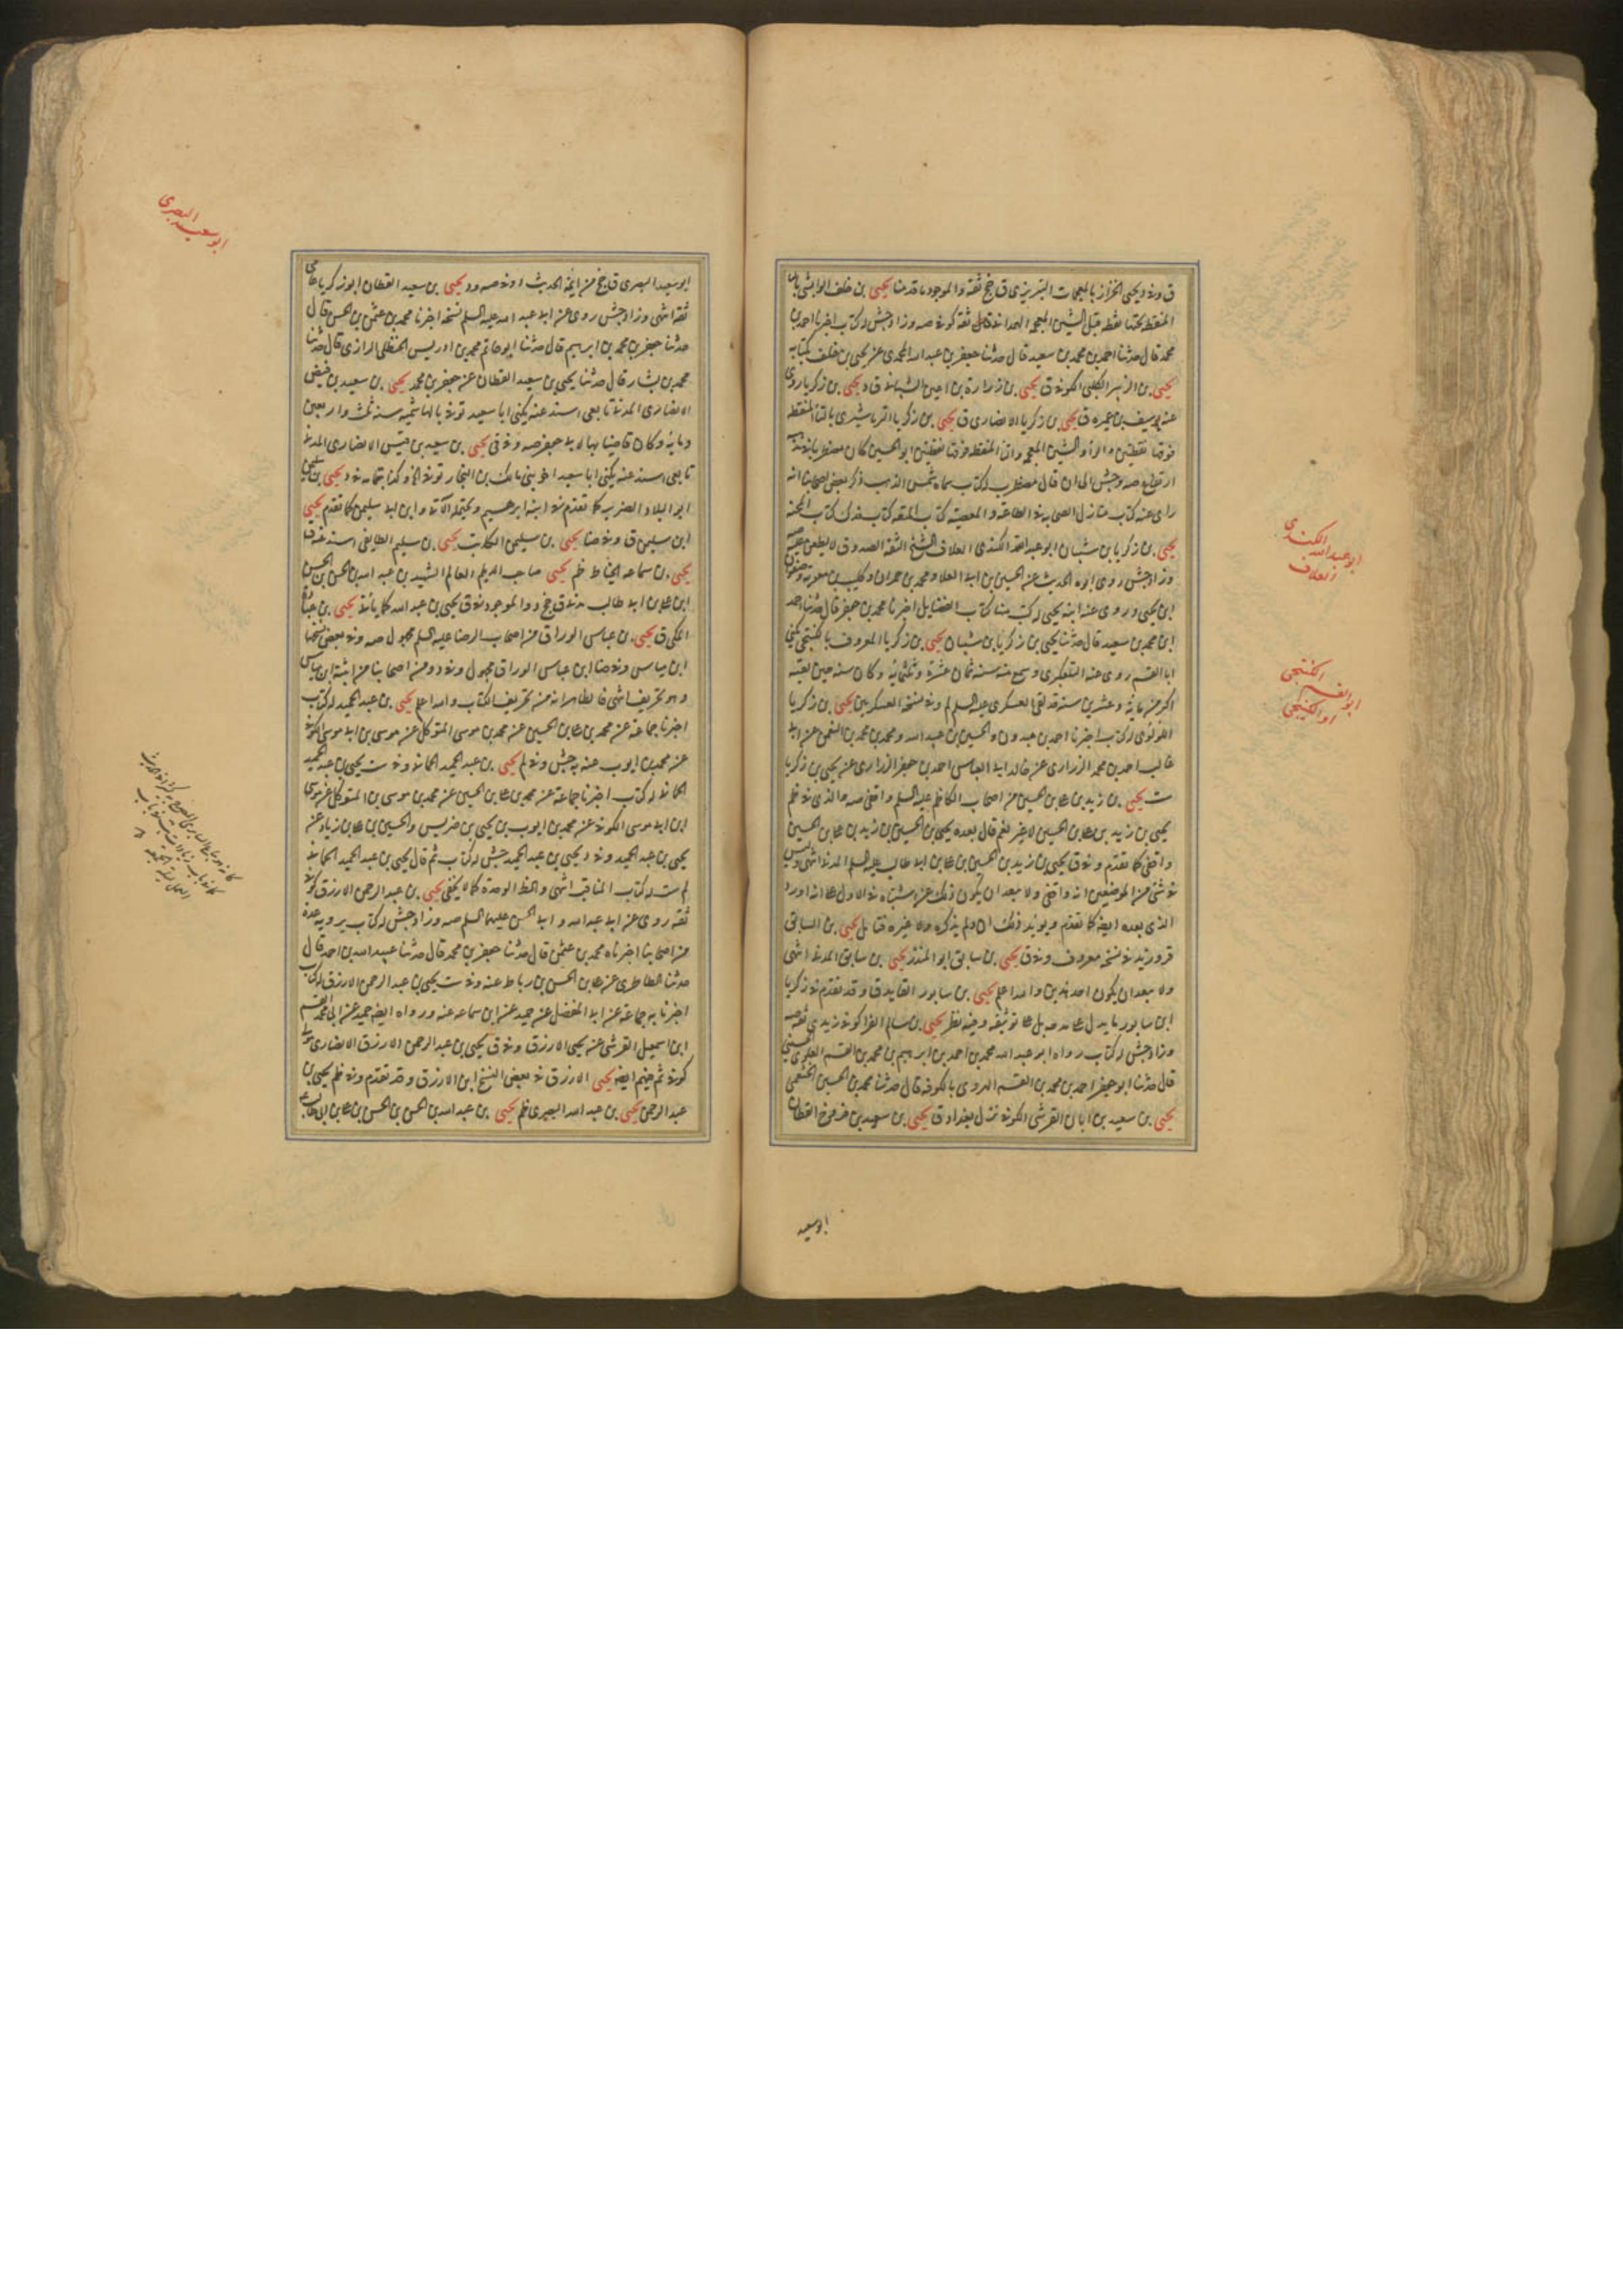 ق وفي د يحيى الخزاز بالمعجمات التبريزي ق جخ ثقة والموجود ما قدمنا يحيى بن خلف الوابشي بالبا
المنقط تحتها نقطه قبل الشين المعجمه الهمداني قال ثقة كوفي صه وزاد جش له كتاب اخبرنا احمد بن
محمد قال حدثنا احمد بن محمد بن سعيد قال حدثنا جعفر بن عبد الله المحمدي عن يحيى بن خلف بكتابه
يحيى بن الزبير الكلبي الكوفي ق يحيى بن زرارة بن اعين الشيباني ق د يحيى بن زكريا روى
عنه يوسف بن عميره ق يحيى بن زكريا الانصاري ق يحيى بن زكريا الترماشيري بالتا المنقط
فوقها نقطتين والراء والشين المعجمه والتا المنقط فوقها نقطتين ابو الحسين كان مضطربا
ارتفاع صه وجش الى ان قال مضطرب له كتاب سماه شمس الذهب ذكر بعض اصحابنا انه
راى عنه كتاب منازل الصحابه في الطاعة والمعصية كتاب المتعه كتاب فدك كتاب المحنه
يحيى بن زكريا بن شيبان ابو عبد الله الكندي العلاف الشيخ الثقة الصدوق لا يطعن عليه صه
وزاد جش روى ابوه الحديث عن الحسين بن ابي العلا ومحمد بن حمران وكليب بن معوية وصفوان
ابن يحيى وروى عنه ابنه يحيى له كتب منها كتاب الفضايل اخبرنا محمد بن جعفر قال حدثنا احمد
ابن محمد بن سعيد قال حدثنا يحيى بن زكريا بن شيبان يحيى بن زكريا المعروف بالكنتجي يكنى
ابا القسم روى عنه التلعكبري وسمع منه سنه ثمان عشرة وثلثمائة وكان سنه حين لقيه
اكثر من مائة وعشرين سنة قد لقي العسكري عليه السلم لم وفي نسخه العسكريين يحيى بن زكريا
اللولوي له كتاب اخبرنا احمد بن عبدون والحسين بن عبيد الله ومحمد بن محمد بن النعمن عن ابي
غالب احمد بن محمد الزراري عن خال ابيه ابي العباس احمد بن جعفر الزراري عن يحيى بن زكريا
ست يحيى بن زيد بن علي بن الحسين من اصحاب الكاظم عليه السلم واقفي صه والذي في ظم
يحيى بن زيد بن علي بن الحسين لا غير نعم قال بعده يحيى بن الحسين بن زيد بن علي بن الحسين
واقفي كما تقدم وفي ق يحيى بن زيد بن الحسين بن علي بن ابي طالب عليه السلم المدني انتهى وليس
في شئ من الموضعين انه واقفي ولا يبعد ان يكون ذلك عن اشتباه في الاول على انه اورد
الذي بعده ايضا كما تقدم ويويد ذلك ان د لم يذكره ولا غيره فتامل يحيى بن السابق
قروزيد في نسخه معروف وفي ق يحيى بن سابق ابو المنذر يحيى بن سابق المدني انتهى
ولا يبعد ان يكون احد هذين والله اعلم يحيى بن سابور القايد ق وقد تقدم في زكريا
ابن سابور ما يدل على مدحه بل على توثيقه وفيه نظر يحيى بن سالم الفرا كوفي زيدي ثقه صه
وزاد جش له كتاب رواه ابو عبد الله محمد بن احمد بن ابرهيم بن محمد بن القسم العلوي الحسني
قال حدثنا ابو جعفر احمد بن محمد بن القسم الهروي بالكوفه قال حدثنا محمد بن الحسين الخثعمي
يحيى بن سعيد بن ابان القرشي الكوفي نزل بغداد ق يحيى بن سعيد بن فروخ القطان
ابو سعيد
ابو عبد الله الكندي
العلاف
الكنتجي
ابو القسم
او الكنيجي
ابو سعيد البصري
ابو سعيد البصري ق جخ من ايمة الحديث وفي صه ود يحيى بن سعيد القطان ابو زكريا عامي
ثقة انتهى وزاد جش روى عن ابي عبد الله عليه السلم نسخه اخبرنا محمد بن عثمن بن الحسن قال
حدثنا جعفر بن محمد بن ابرهيم قال حدثنا ابو حاتم محمد بن ادريس الحنظلي الرازي قال حدثنا
محمد بن بشار قال حدثنا يحيى بن سعيد القطان عن جعفر بن محمد يحيى بن سعيد بن قيس
الانصاري المدني تابعي اسند عنه يكنى ابا سعيد توفي بالهاشميه سنه ثلث واربعين
ومايه وكان قاضيا بها لابي جعفر صه وفي ق يحيى بن سعيد بن قيس الانصاري المدني
تابعي اسند عنه يكنى ابا سعيد اخو بني مالك بن النجار توفي الخ وكذا بتمامه في د يحيى بن سليمن
ابو البلاد الضرير كما تقدم في ابنه ابرهيم ويحتمل الآتي وابن ابي سليمن كما تقدم يحيى
ابن سليمن ق وفي هنا يحيى بن سليمن الكاتب يحيى بن سليم الطايفي اسند عنه ق
يحيى بن سماعه الخياط ظم يحيى صاحب الديلم العالم الشهيد بن عبد الله بن الحسن بن الحسن
ابن علي بن ابي طالب مدني ق جخ د والموجود في ق يحيى بن عبد الله كما ياتي يحيى بن عباد
المكي ق يحيى بن عباس الوراق من اصحاب الرضا عليه السلم مجهول صه وفي بعض نسخها
ابن عياس وفي ضا ابن عباس الوراق مجهول وفي د ومن اصحابنا من اثبته ابن عياس
وهو تحريف انتهى فالظاهر انه من تحريف الكتاب والله اعلم يحيى بن عبد الحميد له كتاب
اخبرنا جماعة عن محمد بن علي بن الحسين عن محمد بن موسى المتوكل عن موسى بن ابي موسى الكوفي
عن محمد بن ايوب عنه به جش وفي لم يحيى بن عبد الحميد الحماني وفي ست يحيى بن عبد الحميد
الحماني له كتاب اخبرنا جماعة عن محمد بن علي بن الحسين عن محمد بن موسى بن المتوكل عن موسى
ابن ابي موسى الكوفي عن محمد بن ايوب بن يحيى بن ضريس والحسين بن علي بن زياد عن
يحيى بن عبد الحميد وفي د يحيى بن عبد الحميد جش له كتاب ثم قال يحيى بن عبد الحميد الحماني
لم ست له كتاب المناقب انتهى والخط الوحدة كما لا يخفى يحيى بن عبد الرحمن الازرق كوفي
ثقه روى عن ابي عبد الله وابي الحسن عليهما السلم صه وزاد جش له كتاب يرويه عدة
من اصحابنا اخبرناه محمد بن عثمن قال حدثنا جعفر بن محمد قال حدثنا عبيد الله بن احمد قال
حدثنا الطاطري عن علي بن الحسن بن رباط عنه وفي ست يحيى بن عبد الرحمن الازرق له كتاب
اخبرنا به جماعة عن ابي المفضل عن حميد عن ابن سماعه عنه ورواه ايضا حميد عن ابي محمد القسم
ابن اسمعيل القرشي عن يحيى الازرق وفي ق يحيى بن عبد الرحمن الازرق الانصاري مولى
كوفي ثم فيهم ايضا يحيى الازرق في بعض النسخ ابن الازرق وقد تقدم وفي ظم يحيى بن
عبد الرحمن يحيى بن عبد الله البصري ظم يحيى بن عبد الله بن الحسن بن الحسن بن علي بن ابي طالب